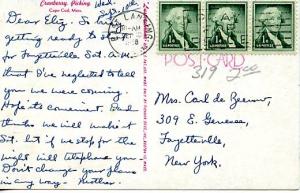 Cranberry Picking
Cape Cod, Mass.
Wed.
Dear Eliz. So
getting ready to
for Fayetteville. Sat. A.M.
that I've neglected to tell
you we were coming.
Hope its convenient. Dad
thinks we will make it
Sat. but if we stop for the
night will telephone you.
Don't change your plans
in any way. Mother.
POST CARD
319 200
Mrs. Carl de Zeeuw,
309 E. Genesee,
Fayetteville,
New York.